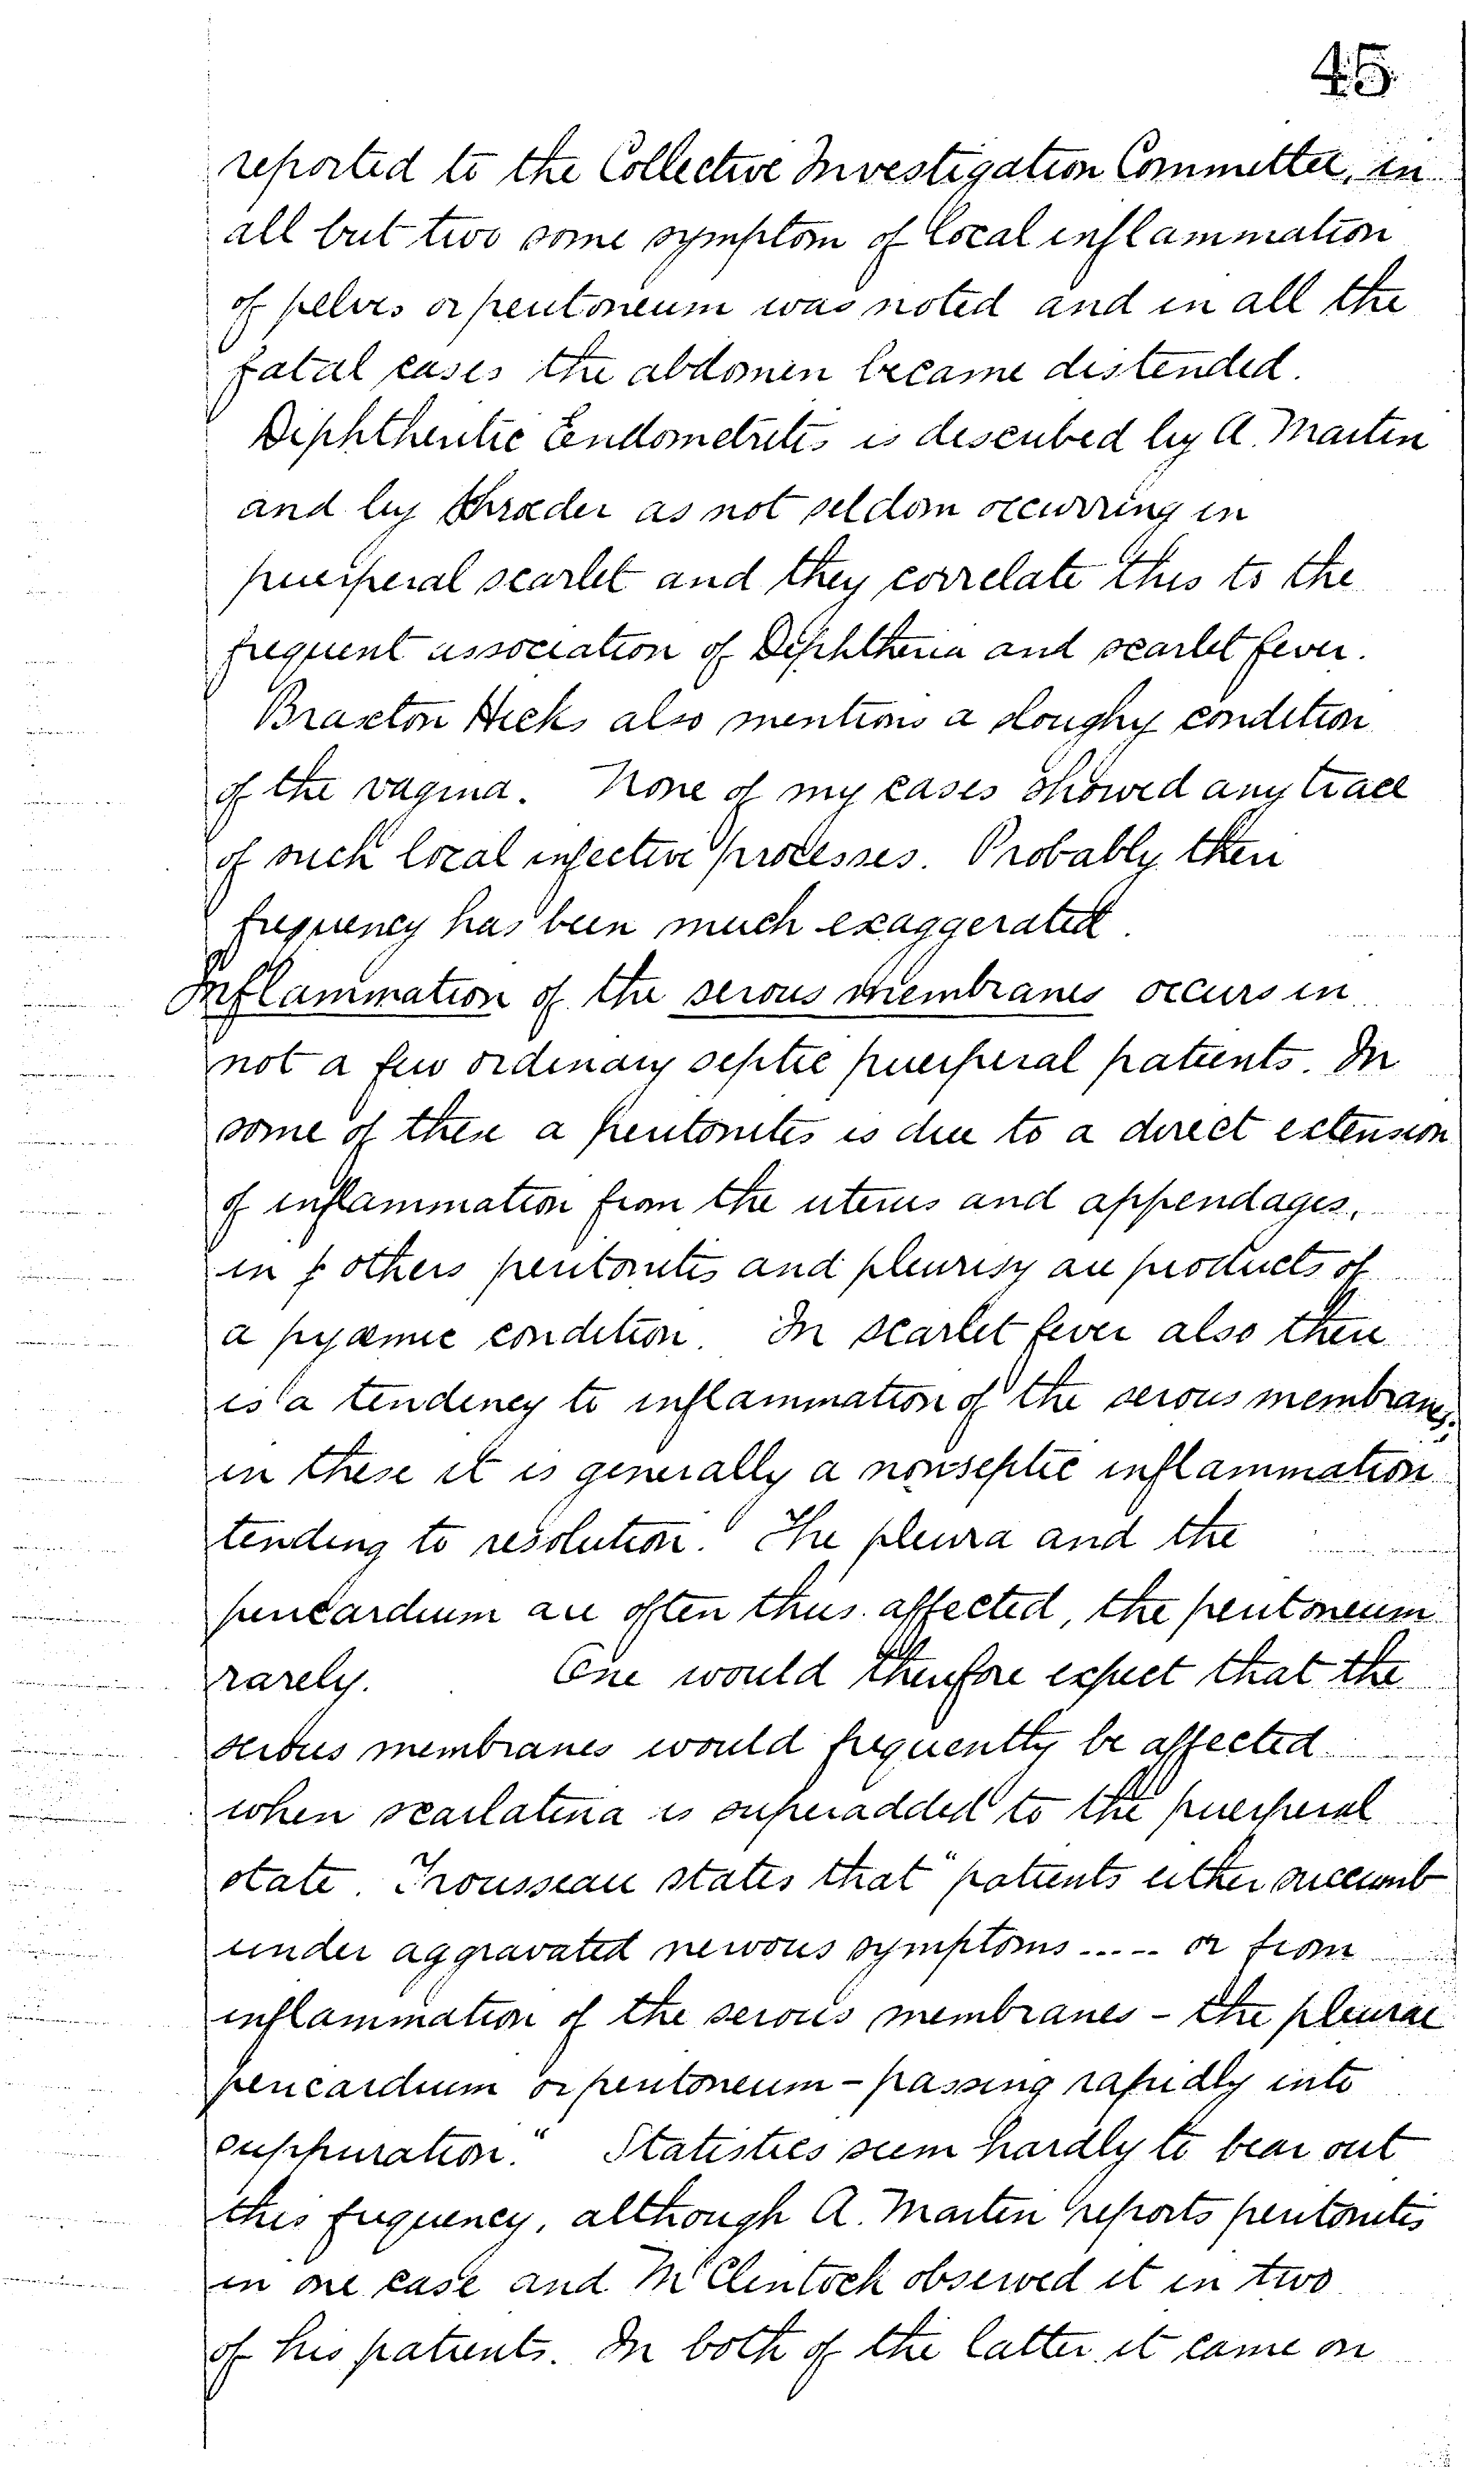 45.
reported to the Collective Investigation Committee, in
all but two some symptom of local inflammation
of pelvis or peritoneum was noted and in all the
fatal cases the abdomen became distended.
Diphtheritic Endometritis is described by A. Martin
and by Schrœder as not seldom occurring in
puerperal scarlet and they correlate this to the
frequent association of Diphtheria and scarlet fever.
Braxton Hicks also mentions a sloughy condition
of the vagina. None of my cases showed any trace
of such local infective processes. Probably their
frequency has been much exaggerated.
Inflammation of the serous membranes occurs in
not a few ordinary septic puerperal patients. In
some of these a peritonitis is due to a direct extension
of inflammation from the uterus and appendages,
in others peritonitis and pleurisy are products of
a pyæmic condition. In scarlet fever also there
is a tendency to inflammation of the serous membranes;
in these it is generally a nonseptic inflammation
tending to resolution. The pleura and the
pericardium are often thus affected, the peritoneum
rarely. One would therefore expect that the
serous membranes would frequently be affected
when scarlatina is superadded to the puerperal
state. Trousseau states that "patients either succumb
under aggravated nervous symptoms ..... or from
inflammation of the serous membranes - the pleurae
pericardium or peritoneum - passing rapidly into
suppuration." Statistics seem hardly to bear out
this frequency, although A. Martin reports peritonitis
in one case and McClintock observed it in two
of his patients. In both of the latter it came on